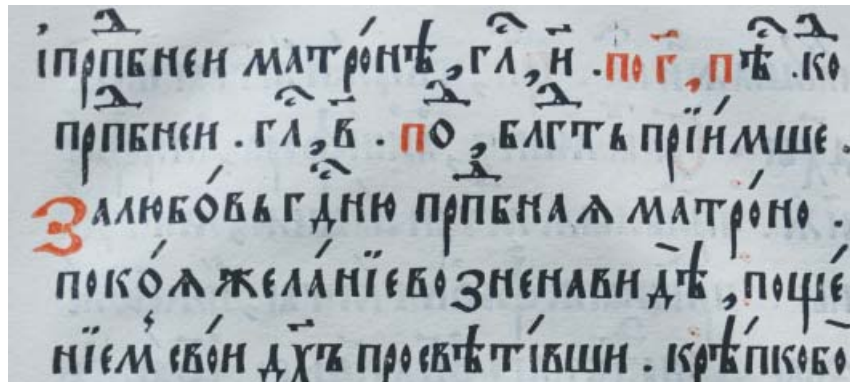 і҆прⷣпбнеи матро́нѣ, гл҃, и҃ . по г҃, пⷭ҇ѣ . ко
прⷣпбнеи . гл҃, в҃ . поⷣ, блⷣгть прїи́мше .
Залюбо́вь гдⷭ҇ню прⷣпбнаѧ матро́но .
поко́ѧ жела́нїе возненави дѣ, поще́
нїем̾ сво́и дх҃ъ просвѣти́вши . крѣ́пкобо